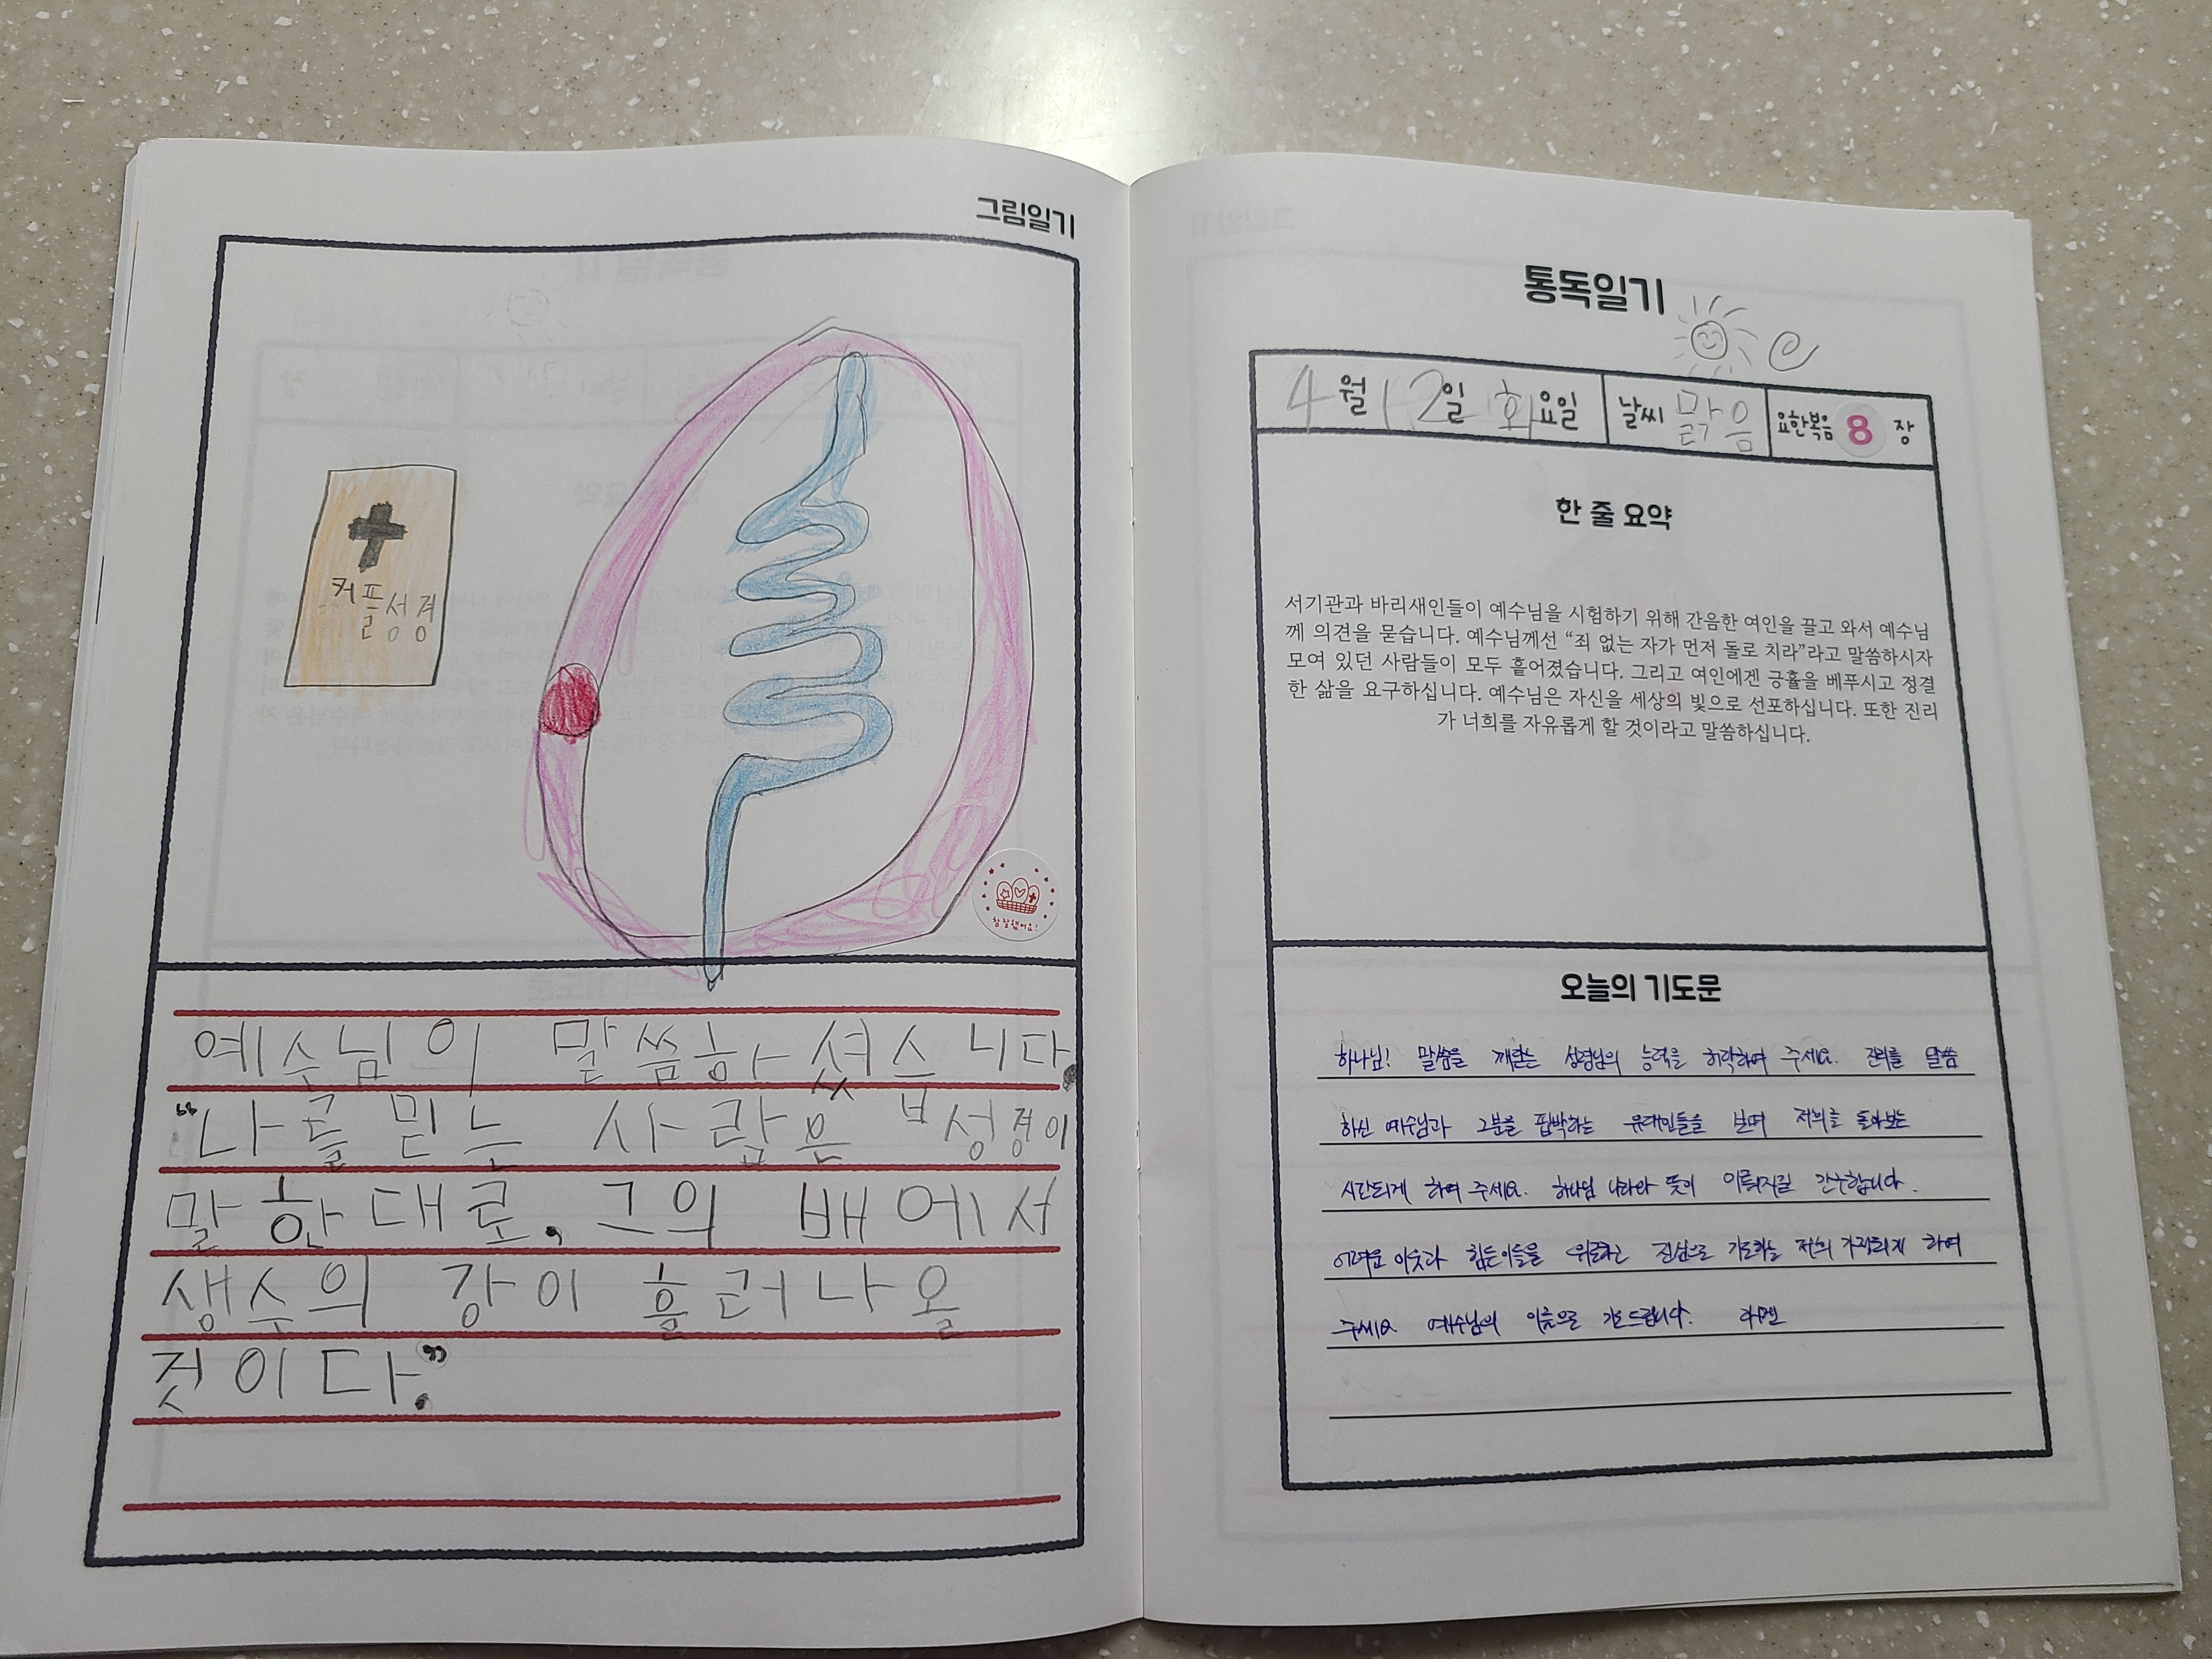 그림일기
커플성경
참 잘했어요!
예수님이 말씀하셨습니다.
“나를 믿는 사람은 성경이
말한대로, 그의 배에서
생수의 강이 흘러나올
것이다.”
통독일기
4월 12일 화요일 날씨 맑음 요한복음 8 장
한 줄 요약
서기관과 바리새인들이 예수님을 시험하기 위해 간음한 여인을 끌고 와서 예수님
께 의견을 묻습니다. 예수님께선 “죄 없는 자가 먼저 돌로 치라”라고 말씀하시자
모여 있던 사람들이 모두 흩어졌습니다. 그리고 여인에겐 긍휼을 베푸시고 정결
한 삶을 요구하십니다. 예수님은 자신을 세상의 빛으로 선포하십니다. 또한 진리
가 너희를 자유롭게 할 것이라고 말씀하십니다.
오늘의 기도문
하나님! 말씀을 깨닫는 성령님의 능력을 허락하여 주세요. 진리를 말씀
하신 예수님과 그분을 핍박하는 유대인들을 보며 저희를 돌아보는
시간되게 하여 주세요. 하나님 나라와 뜻이 이뤄지길 간구합니다.
어려운 이웃과 힘든이들을 위로하고 진심으로 기도하는 저희 가정되게 하여
주세요 예수님의 이름으로 기도드립니다. 아멘